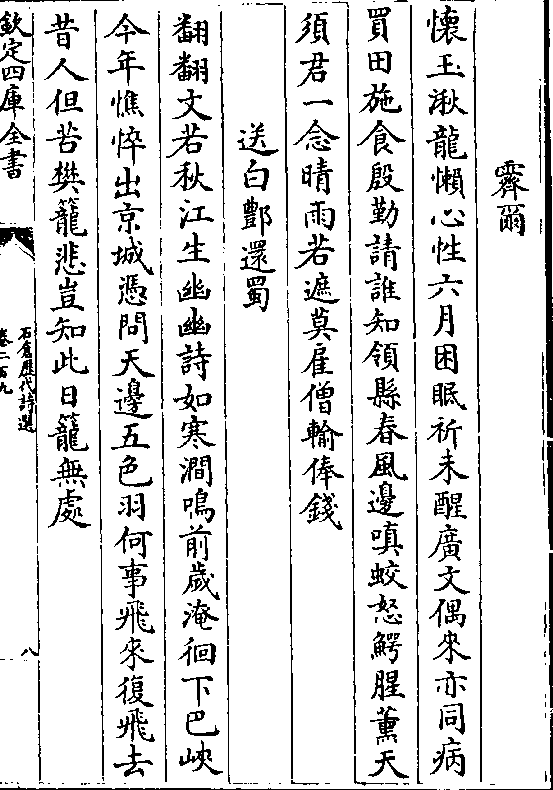 霽爾
懷玉湫龍懶心性六月困眠祈未醒廣文偶來亦同病
買田施食殷勤請誰知領縣春風邊嗔蛟怒鰐腥薰天
須君一念晴雨若遮莫雇僧輸俸錢
送白酆還蜀
翻翻文若秋江生幽幽詩如寒澗鳴前歲淹徊下巴峽
今年憔悴出京城憑問天邊五色羽何事飛來復飛去
昔人但苦樊籠悲豈知此日籠無處
欽定四庫全書
石倉歷代詩選
卷二百九
八